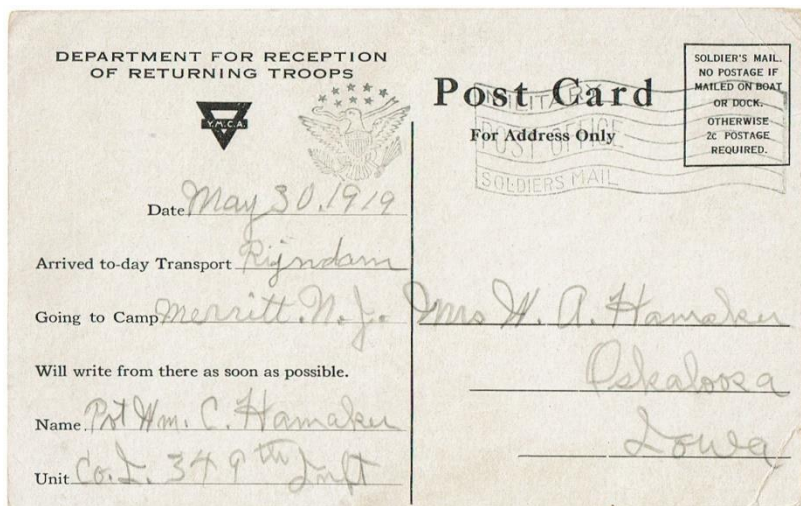 DEPARTMENT FOR RECEPTION
OF RETURNING TROOPS
Y.M.C.A.
Date May 30, 1919
Arrived to-day Transport Rijndam
Going to Camp Merritt. N. J.
Will write from there as soon as possible.
Name Pvt Wm. C. Hamaker
Unit Co. I. 349th Inft
Post Card
For Address Only
MILITARY
POST OFFICE
SOLDIERS MAIL
SOLDIER'S MAIL.
NO POSTAGE IF
MAILED ON BOAT
OR DOCK.
OTHERWISE
2c POSTAGE
REQUIRED.
Mrs W. A. Hamaker
Oskaloosa
Iowa